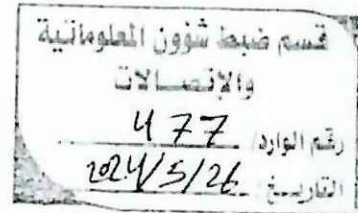 قسم ضبط شؤون المعلوماتية
والإتصالات
رقم الوارد/ 477
التاريخ: 2024/5/26